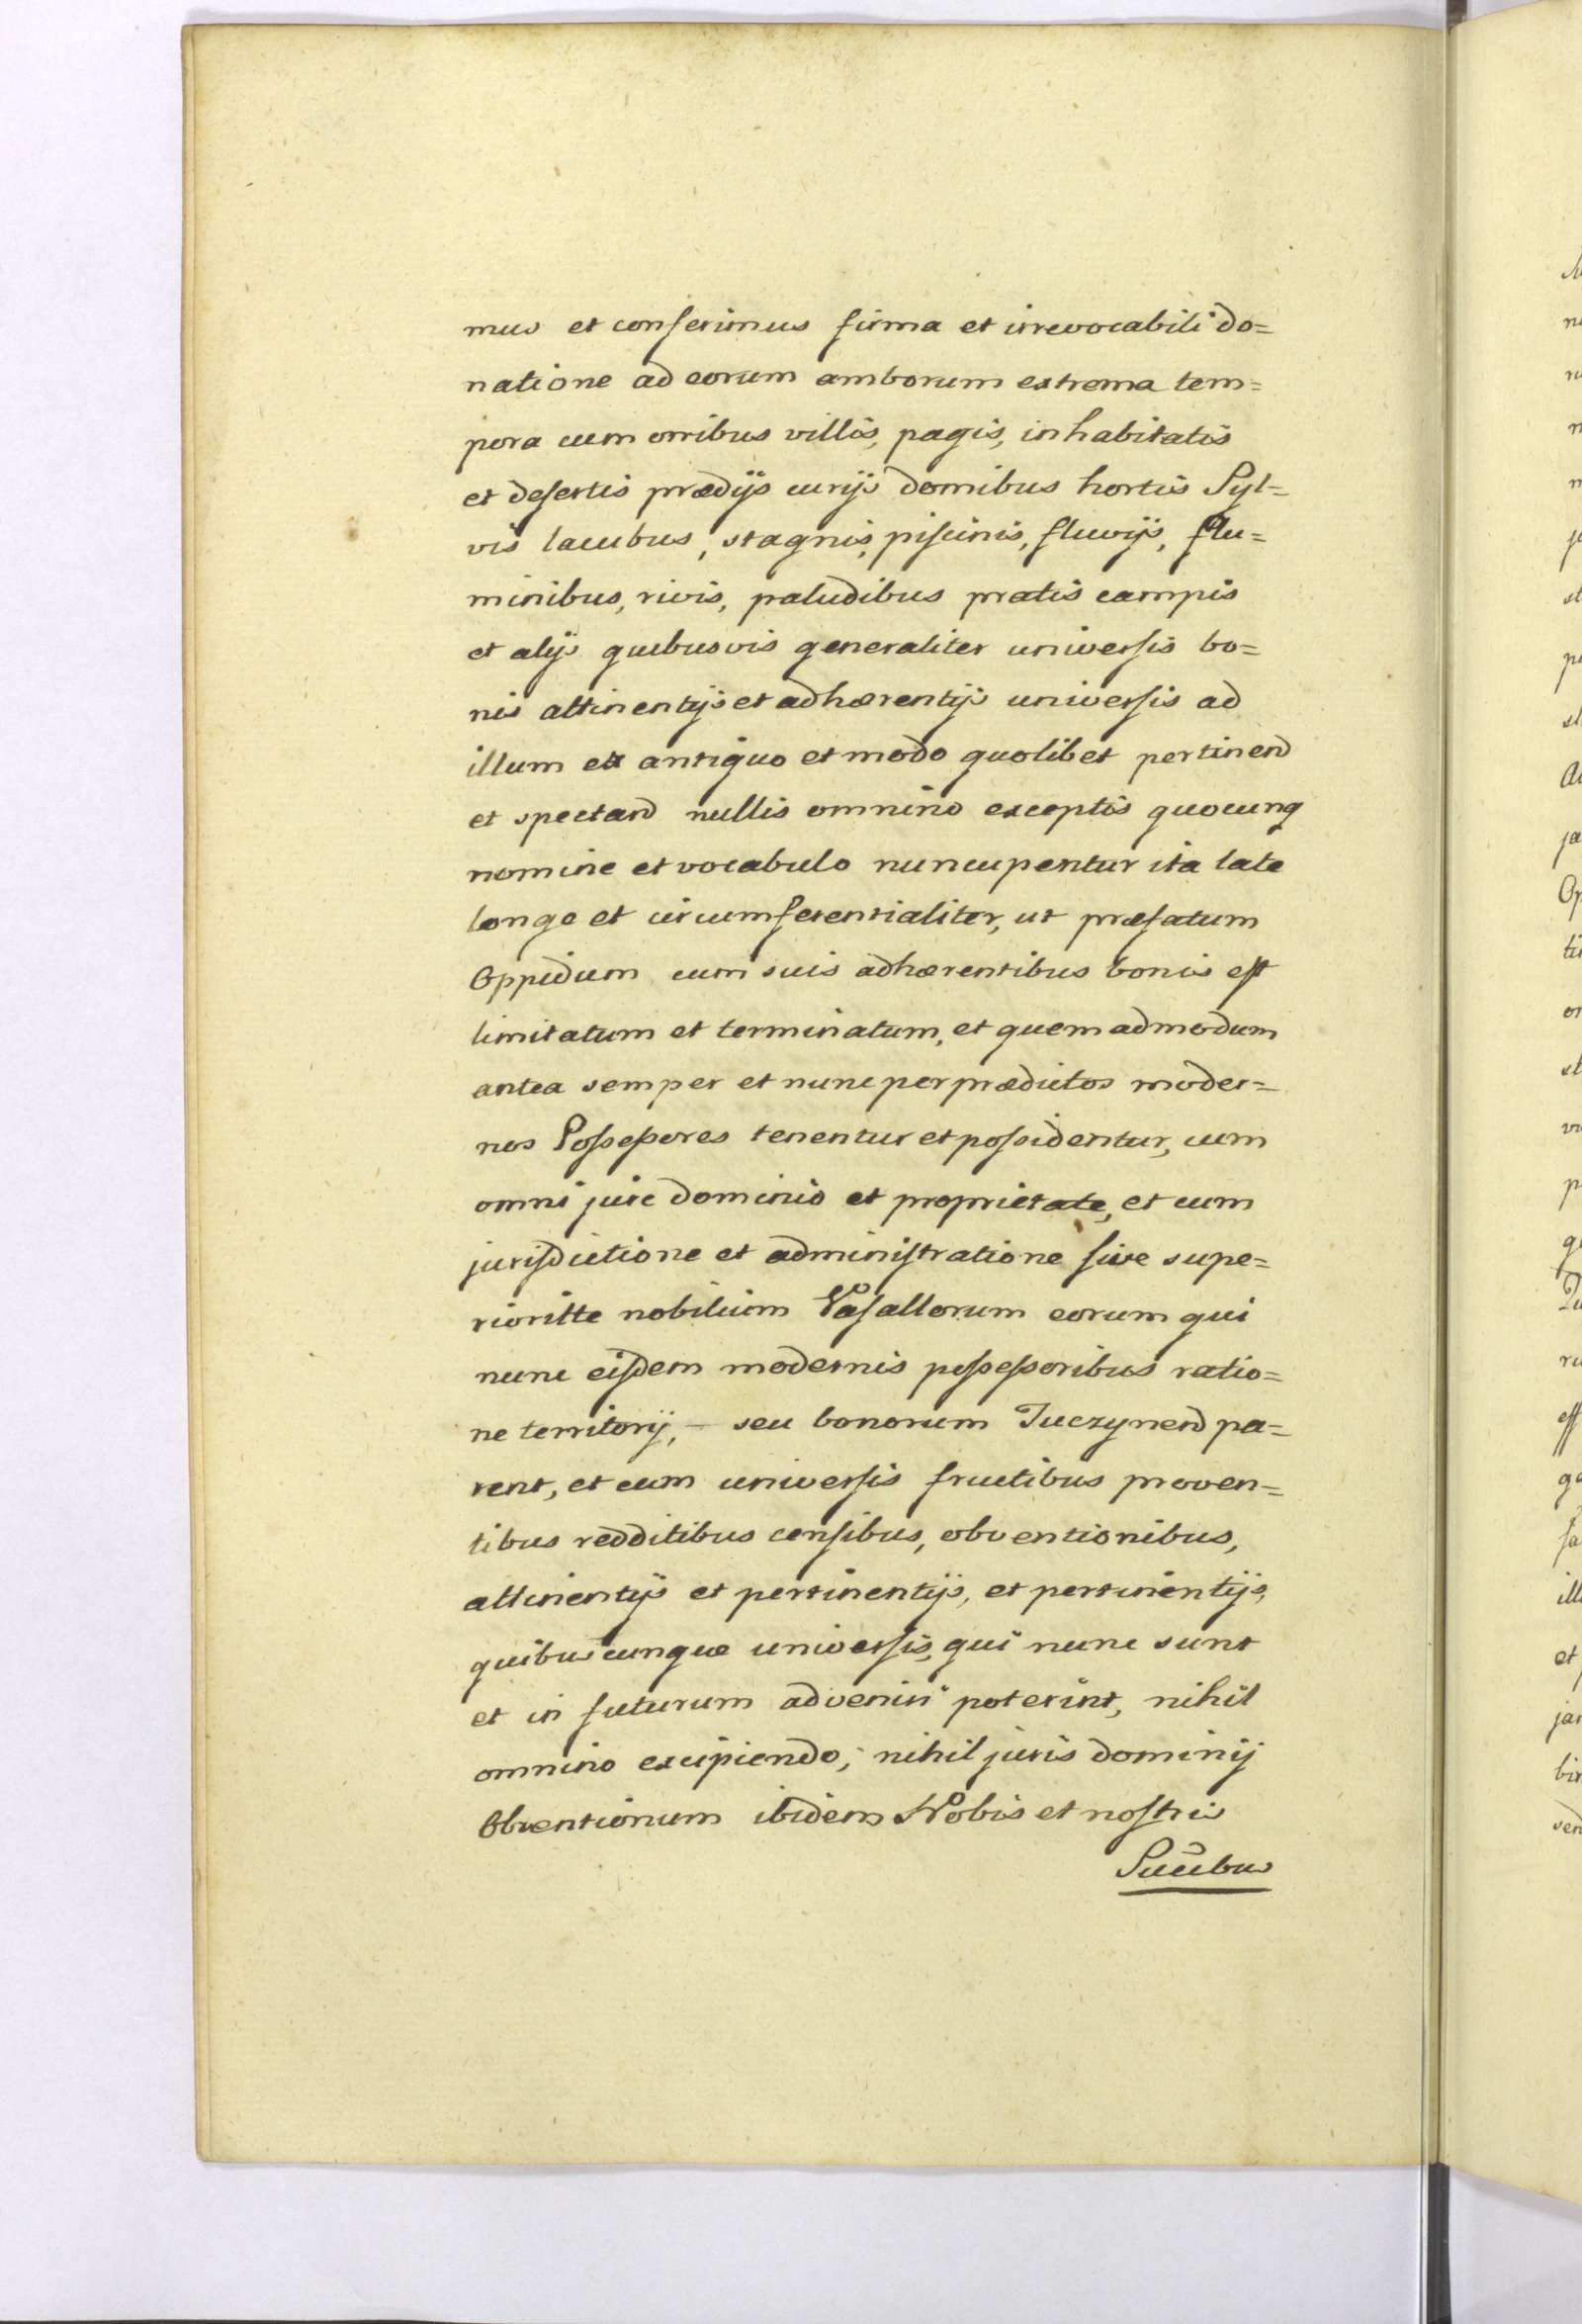 mus et conferimus firma et irrevocabili do=
natione ad eorum amborum extrema tem=
pora cum omibus villis, pagis, inhabitatis
et desertis prædijs curijs domibus hortis Syl=
vis lacubus, stagnis, piscinis, fluvijs, flu=
minibus, rivis, paludibus pratis campis
et alijs quibusvis generaliter universis bo=
nis attinentijs et adhærentijs universis ad
illum ex antiquo et modo quolibet pertinend
et spectand nullis omnino exceptis quocunq
nomine et vocabulo nuncupentur ita late
longe et circumferentialiter, ut præfatum
Oppidum cum suis adhærentibus bonis est
limitatum et terminatum, et quemadmodum
antea semper et nunc per prædictos moder=
nos Possessores tenentur et possidentur, cum
omni jure dominio et proprietate, et cum
jurisdictione et administratione sive supe=
rioritte nobilium Vasallorum eorum qui
nunc eisdem modernis possessoribus ratio=
ne territorij, — seu bonorum Tuczynend pa=
rent, et cum universis fructibus proven=
tibus redditibus censibus, obventionibus,
attinentijs et pertinentijs, et pertinentijs,
quibuscunque universis, qui nunc sunt
et in futurum adveniri poterint, nihil
omnino excipiendo, nihil juris dominij
Obventionum ibidem Nobis et nostris
Succibus